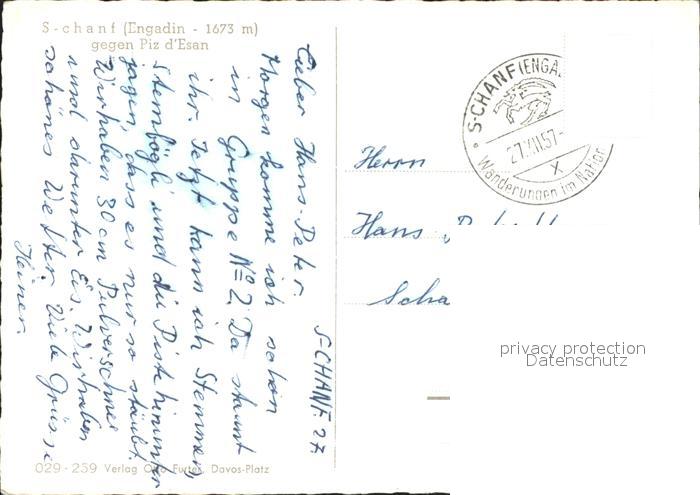 S-chanf (Engadin - 1673 m)
gegen Piz d'Esan
S-CHANF. 27
Lieber Hans-Peter
Morgen komme ich schon
in Gruppe No 2. Da staunt
ihr. Jetzt kann ich Stemmen,
Stembögli und die Piste hinunter
jagen, dass es nur so stäubt.
Wir haben 30 cm Pulverschnee
und darunter Eis. Wir haben
schönes Wetter. Viele Grüsse
Heiner.
029-259 Verlag Otto Furter, Davos-Platz
S-CHANF (ENGA
27.XII.57-
X
Wanderungen im Nation
Herrn
Hans
Scha
privacy protection
Datenschutz